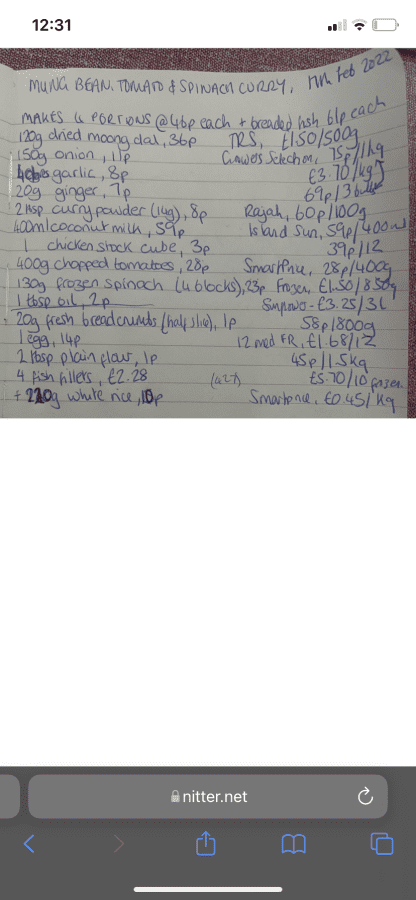 12:31
MUNG BEAN, TOMATO & SPINACH CURRY, 17th Feb 2022
MAKES 4 PORTIONS @46p each + breaded fish 61p each
120g dried moong dal, 36p TRS, £1.50/500g
150g onion, 11p Growers Selection, 75p/1kg
garlic, 8p £3.70/kg
20g ginger, 7p 69p/3 bulbs
2 tbsp curry powder (14g), 8p Rajah, 60p/100g
400ml coconut milk, 59p Island Sun, 59p/400ml
1 chicken stock cube, 3p 39p/12
400g chopped tomatoes, 28p SmartPrice, 28p/400g
130g frozen spinach (4 blocks), 23p Frozen, £1.50/850g
1 tbsp oil, 2p - £3.25/3L
20g fresh breadcrumbs (half slice), 1p 58p/800g
1 egg, 14p 12 med FR, £1.68/12
2 tbsp plain flour, 1p 45p/1.5kg
4 fish fillets, £2.28 £5.70/10 frozen
+ 220g white rice, 10p Smartprice, £0.45/kg
nitter.net